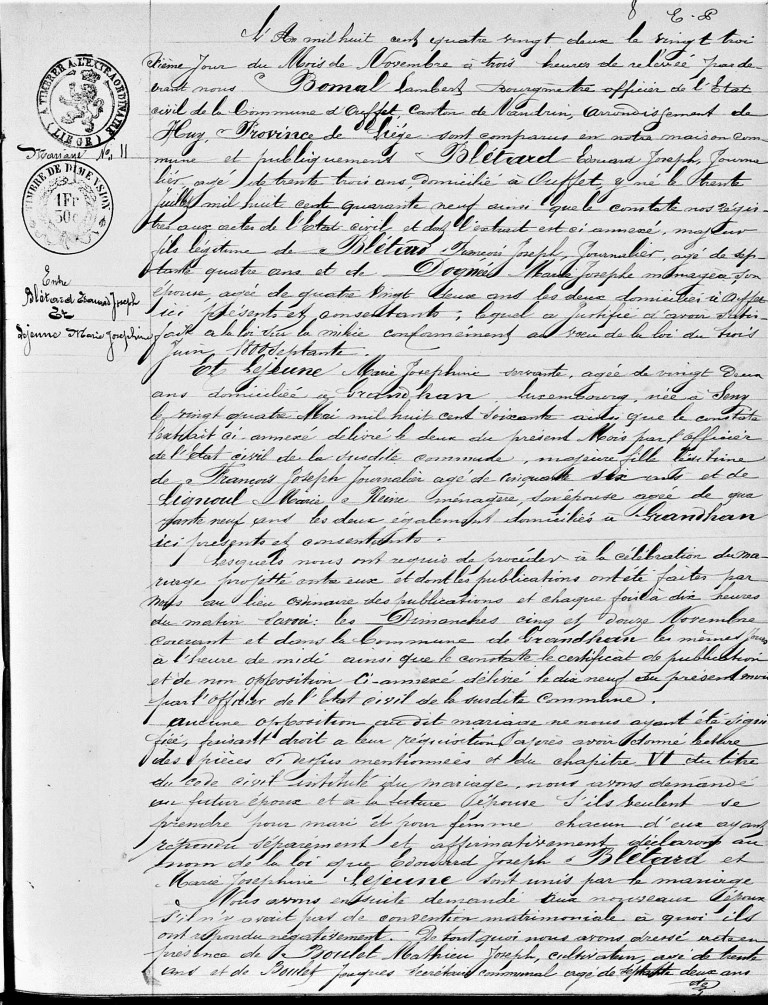 8 E. P
L'An mil huit cent quatre vingt deux le vingt troi
sième Jour du Mois de Novembre à trois heures de relevée par de-
vant nous Bomal Lambert Bourgmestre officier de l'Etat
civil de la Commune d'Ouffet Canton de Nandrin, arrondissement de
Huy, Province de Liége sont comparus en notre maison com-
mune et publiquement Blétard Edouard Joseph, Journa
lier, agé de trente trois ans, domicilié à Ouffet, y né le trente
Juillet mil huit cent quarante neuf ainsi que le constate nos régis-
tres aux actes de l'Etat civil et dont l'extrait est ci annexé, majeur
fils légitime de Blétard François Joseph, Journalier, agé de sep-
tante quatre ans et de Dogné Marie Josephe ménagère, son
épouse, agée de quatre vingt deux ans les deux domiciliés à Ouffet
ici présents et consentants; lequel a justifié d'avoir satis-
fait a la loi sur la milice conformément au vœu de la loi du trois
Juin 1800 septante.
Et Lejeune Marie Josephine servante, agée de vingt deux
ans domiciliée à Grandhan Luxembourg, née à Seny
le vingt quatre Mai mil huit cent soixante ainsi que le constate
l'extrait ci-annexé délivré le deux du présent Mois par l'officier
de l'Etat civil de la susdite commune, majeure fille légitime
de François Joseph Journalier agé de cinquante six ans et de
Lignoul Marie Reine ménagère, son épouse agée de qua
rante neuf ans les deux également domiciliés à Grandhan
ici présents et consentants.
Lesquels nous ont requis de procéder à la célébration du ma-
riage projetté entre eux et dont les publications ont été faites par
nous au lieu ordinaire des publications et chaque fois à dix heures
du matin savoir: les Dimanches cinq et douze Novembre
courant et dans la Commune de Grandhan les mêmes Jours
à l'heure de midi ainsi que le constate le certificat de publication
et de non opposition ci-annexé délivré le dix neuf du présent mois
par l'officier de l'Etat civil de la susdite Commune.
Aucune opposition au dit mariage ne nous ayant été signi
fiée, faisant droit a leur réquisition, après avoir donné lecture
des pièces ci dessus mentionnées et du chapitre VI du titre
du code civil intitulé du mariage, nous avons demandé
au futur époux et a la future épouse s'ils veulent se
prendre pour mari et pour femme chacun d'eux ayant
répondu séparément et affirmativement déclarons au
nom de la loi que Edouard Joseph Blétard et
Marie Josephine Lejeune sont unis par le mariage
Nous avons ensuite demandé aux nouveaux époux
s'il n'y avait pas de convention matrimoniale à quoi ils
ont répondu négativement. De tout quoi nous avons dressé acte en
présence de Boulet Mathieu Joseph, cultivateur, agé de trente
ans et de Boulet Jacques Secrétaire communal agé de septante deux ans
A TIMBRER A L'EXTRAORDINAIRE
(LIÉGE)
Mariage No 11
TIMBRE DE DIMENSION
1 Fr
30 c
Entre
Blétard Edouard Joseph
Et
Lejeune Marie Josephine